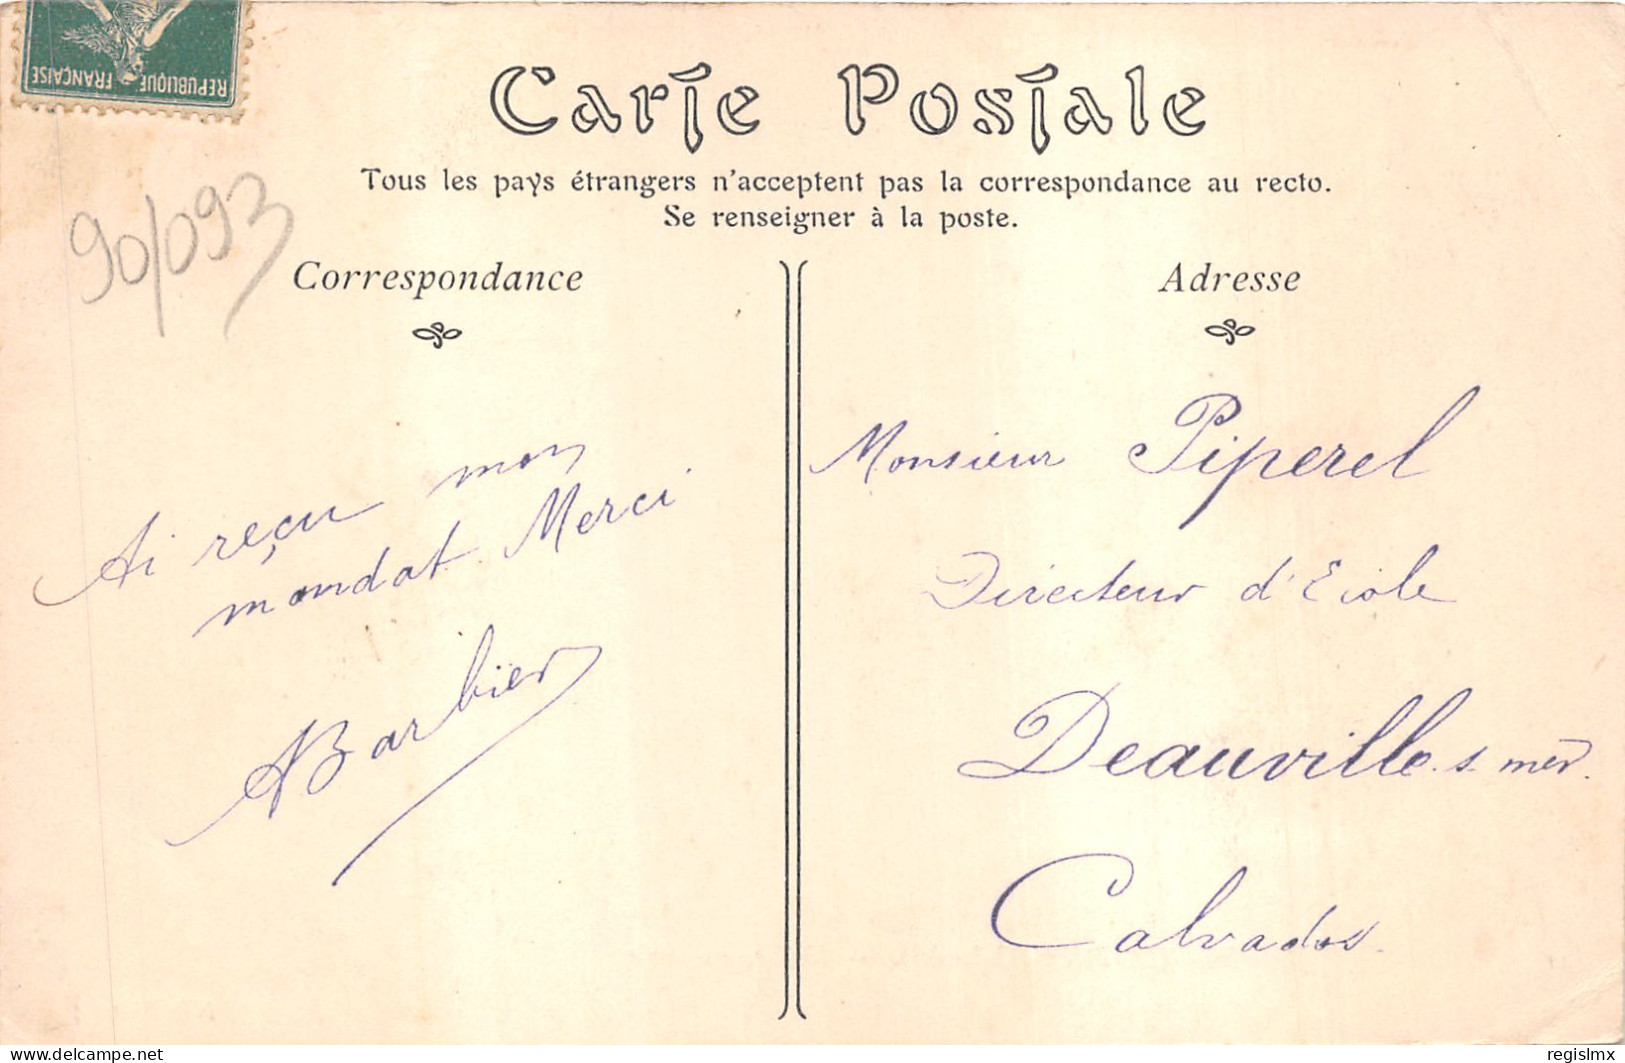 REPUBLIQUE FRANÇAISE
Carte Postale
Tous les pays étrangers n'acceptent pas la correspondance au recto.
Se renseigner à la poste.
90/093
Correspondance
Ai reçu mon
mandat. Merci
ABarbier
Adresse
Monsieur Piperel
Directeur d'Ecole
Deauville s. mer.
Calvados.
delcampe.net
regislmx